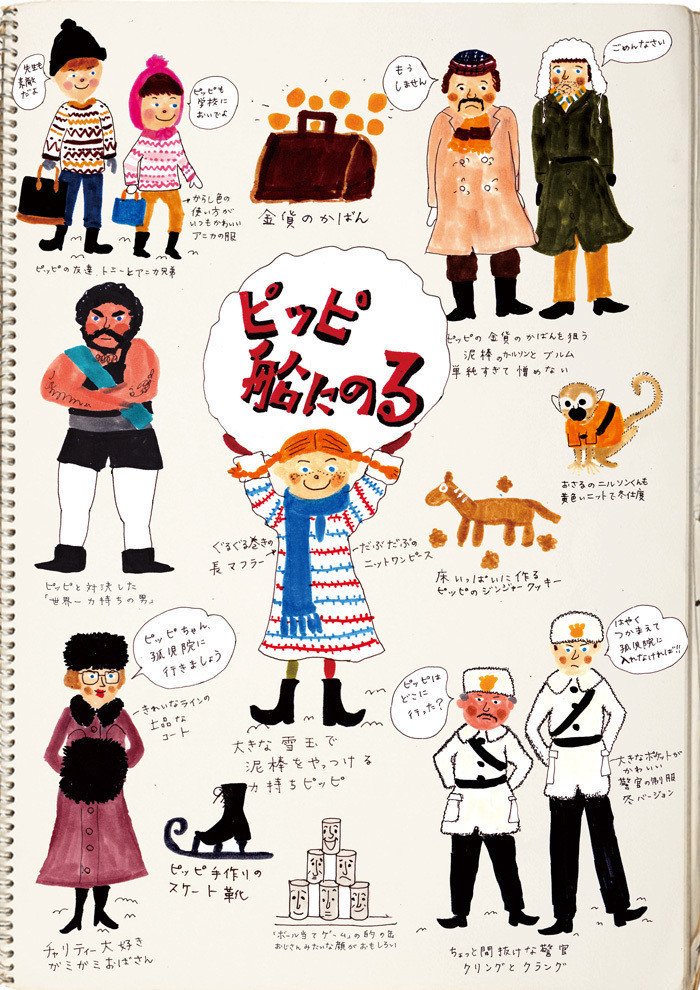 先生も
素敵
だよ
ピッピも
学校に
おいでよ
もう
しません
ごめんなさい
→からし色の
使い方が
いつもかわいい
アニカの服
金貨のかばん
ピッピの友達 トミーとアニカ兄弟
ピッピの金貨のかばんを狙う
泥棒のカールソンとブルム
単純すぎて憎めない
ピッピ
船にのる
おさるのニルソンくんも
黄色いニットで冬仕度
ぐるぐる巻きの
長マフラー→
だぶだぶの
ニットワンピース
床いっぱいに作る
ピッピのジンジャークッキー
ピッピと対決した
「世界一力持ちの男」
ピッピちゃん、
孤児院に
行きましょう
きれいなラインの
上品な
コート
大きな雪玉で
泥棒をやっつける
力持ちピッピ
ピッピは
どこに
行った?
はやく
つかまえて
孤児院に
入れなければ!!
大きなポケットが
かわいい
警官の制服
冬バージョン
ピッピ手作りの
スケート靴
チャリティー大好き
ガミガミおばさん
「ボール当てゲーム」の的の缶
おじさんみたいな顔がおもしろい
ちょっと間抜けな警官
クリングとクラング